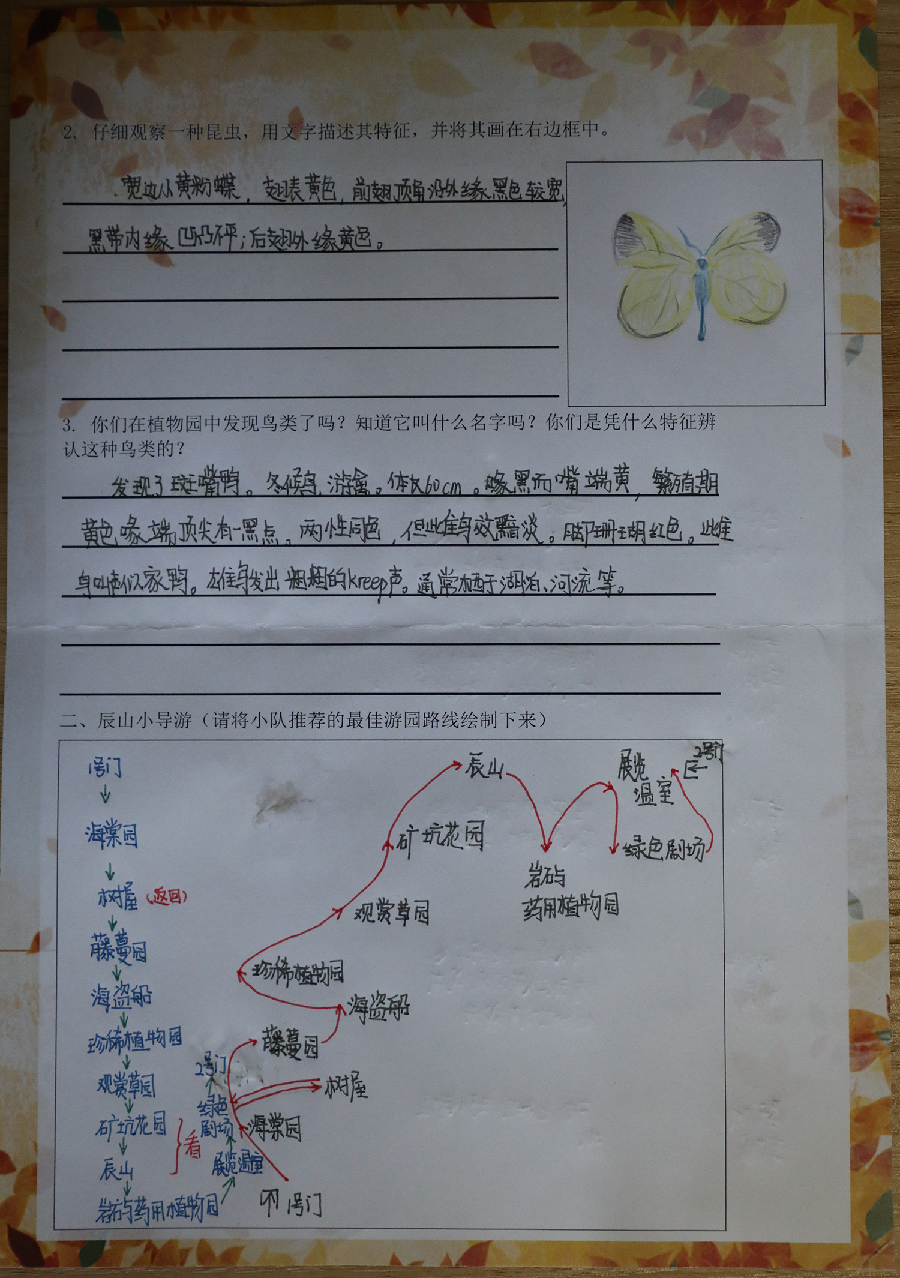 2. 仔细观察一种昆虫，用文字描述其特征，并将其画在右边框中。
宽边小黄粉蝶，翅表黄色，前翅顶角沿外缘黑色较宽，
黑带内缘凹凸不平；后翅外缘黄色。
3. 你们在植物园中发现鸟类了吗？知道它叫什么名字吗？你们是凭什么特征辨
认这种鸟类的？
发现了斑嘴鸭。冬候鸟，游禽。体长60cm。喙黑而嘴端黄，繁殖期
黄色喙端顶尖有一黑点。两性同色，但雌鸟较黯淡。脚珊瑚红色。雌
鸟叫声似家鸭。雄鸟发出粗粗的kreep声。通常栖于湖泊、河流等。
二、辰山小导游（请将小队推荐的最佳游园路线绘制下来）
1号门
海棠园
树屋（返回）
藤蔓园
海盗船
珍稀植物园
观赏草园
矿坑花园
辰山
看
岩石与药用植物园
展览温室
绿色
剧场
2号门
1号门
海棠园
树屋
藤蔓园
海盗船
珍稀植物园
观赏草园
矿坑花园
辰山
岩石与
药用植物园
展览
温室
绿色剧场
2号门